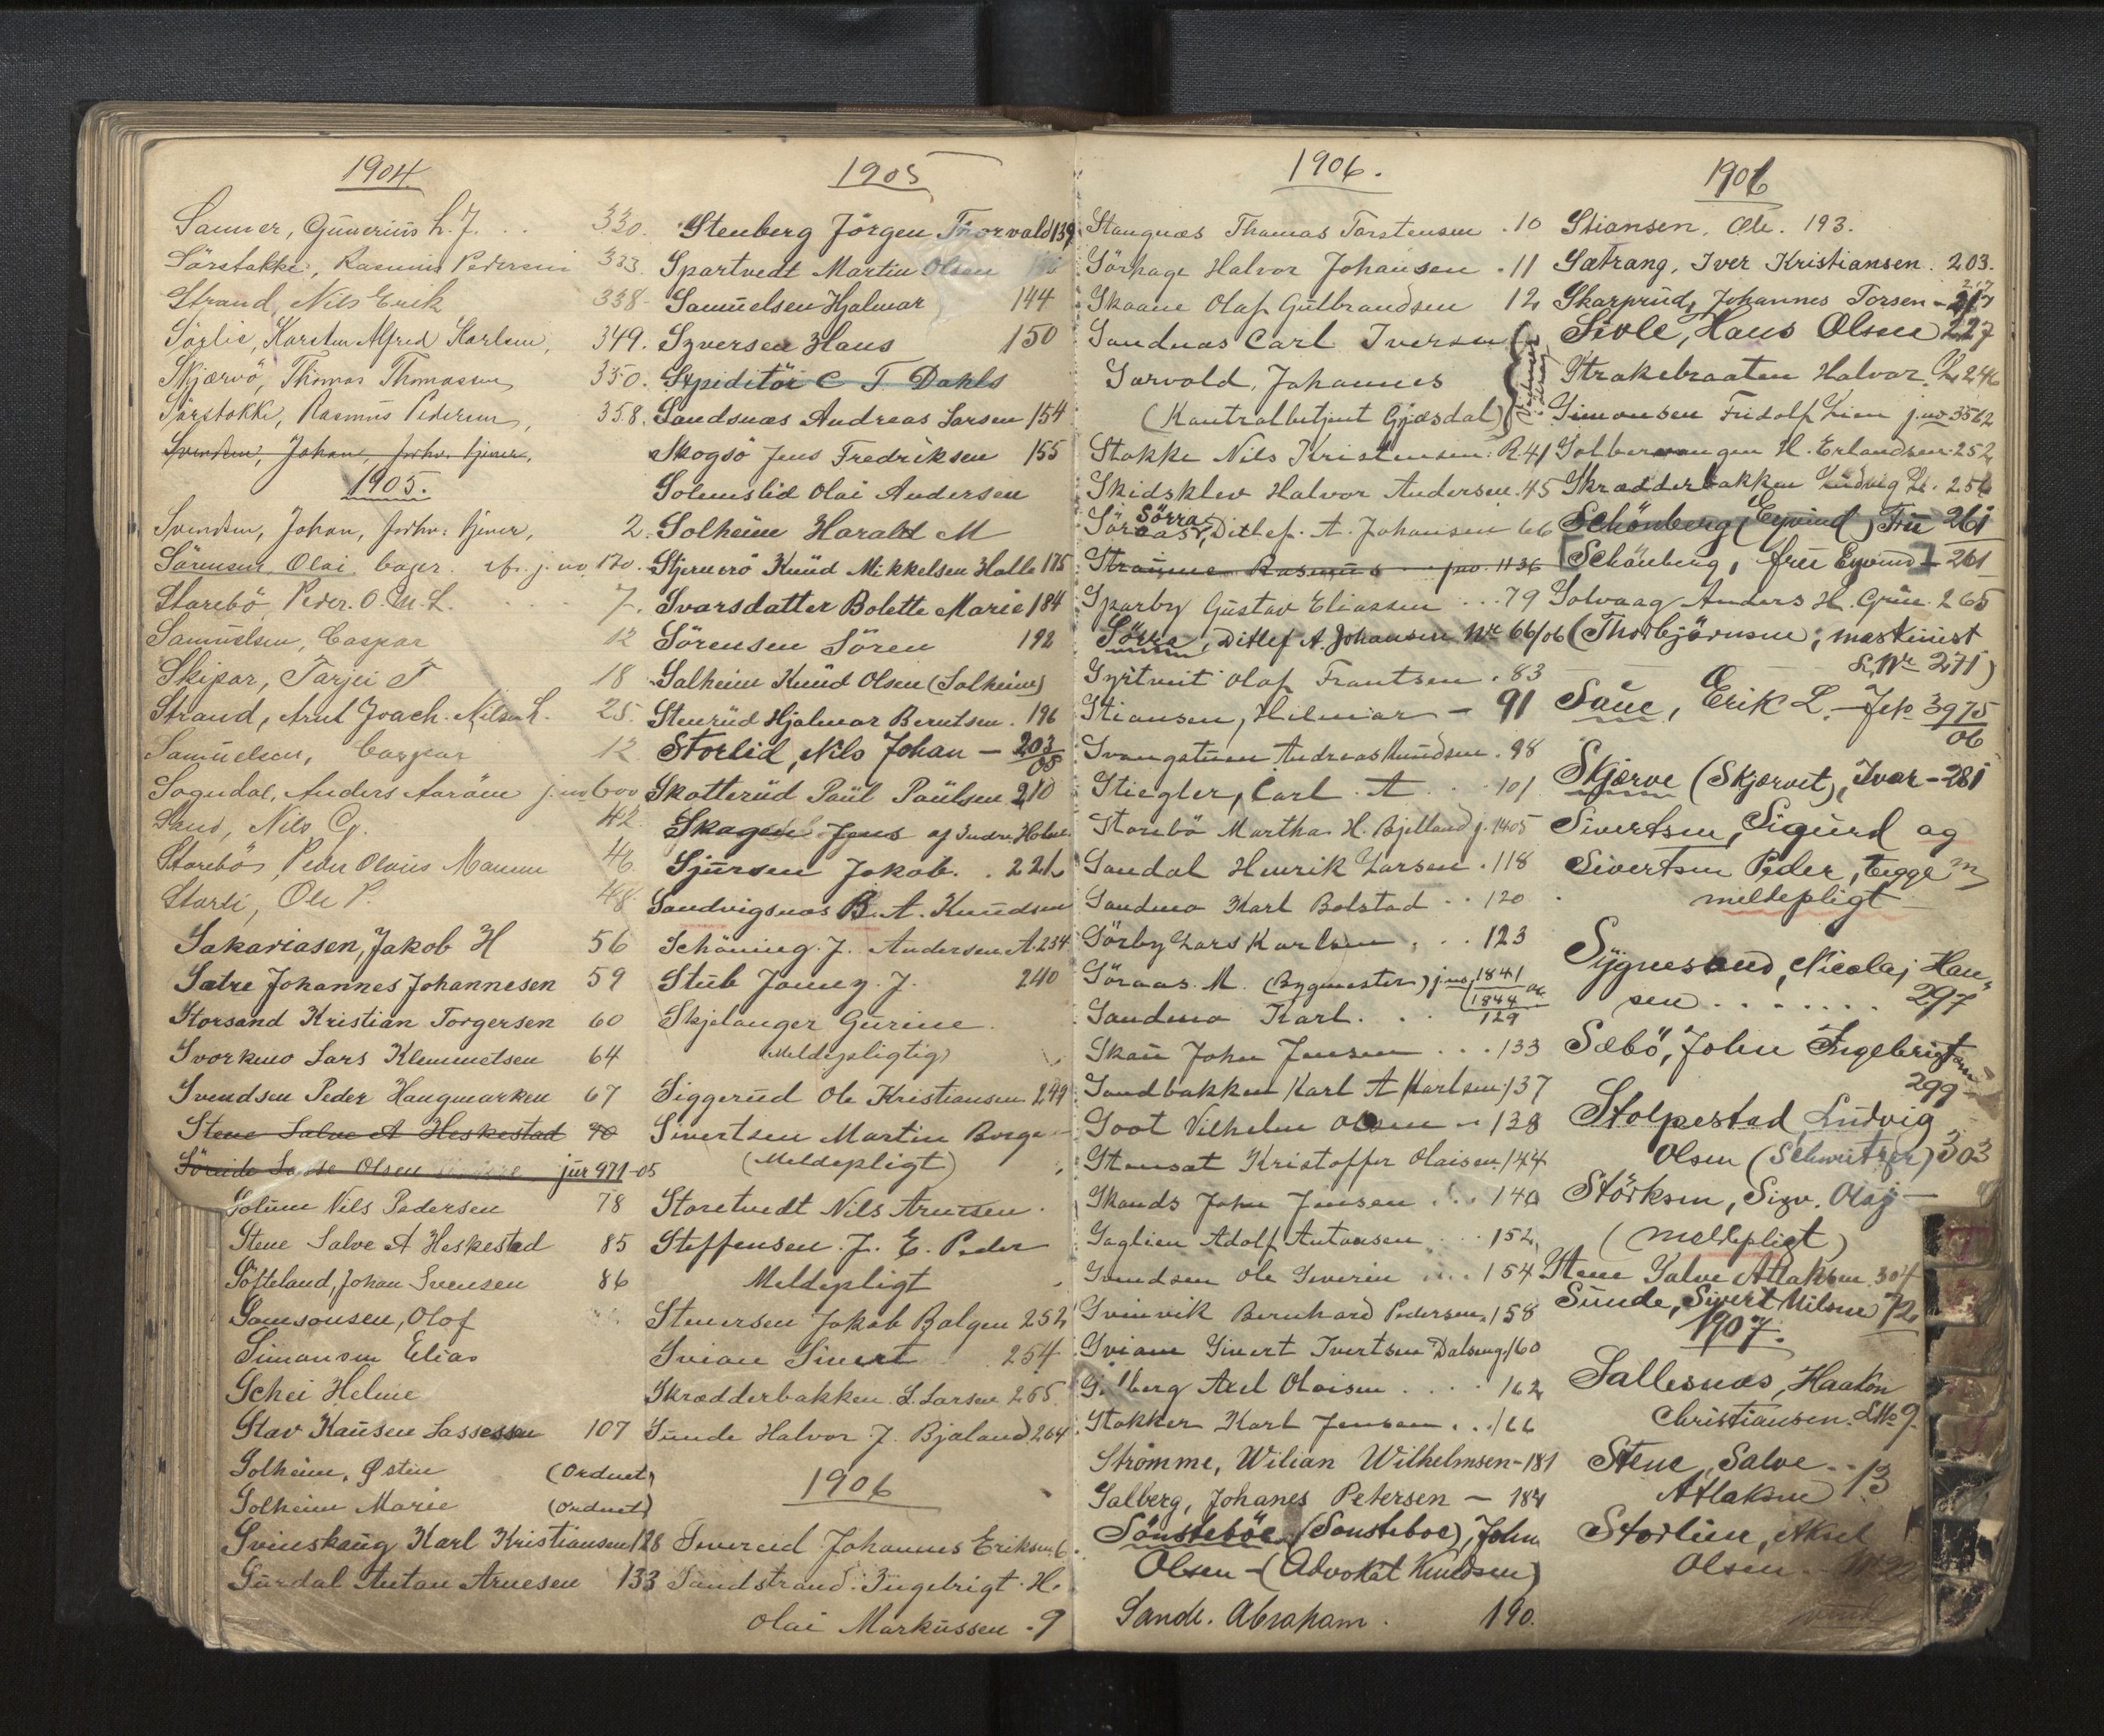 1904
Sanner, Gunerius L. J. . . 330.
Sörstokke, Rasmus Pedersen 333.
Strand, Nils Erik 338.
Sörlie, Karsten Alfred Karlsen, 349.
Skjærvö, Thomas Thomassen 350.
Sörstokke, Rasmus Pedersen, 358.
Svendsen, Johan, forhv. tjener,
1905.
Svendsen, Johan, forhv. tjener, 2.
Sörensen, Olai bager. cf. j. no 120.
Storebö, Peder. O. M. L. 7.
Samuelsen, Caspar 12
Skipar, Tarjei T 18
Strand, Arnt Joach. Nilsen L. 25.
Samuelsen, Caspar 12
Sogndal, Anders Aaröen j. no 600
Sand, Nils G. 42.
Storebö, Peder Olaus Monsen 46.
Storli, Ole P. 48
Sakariasen, Jakob H 56
Sætre Johannes Johannesen 59
Storsand Kristian Torgersen 60
Svorkmo Lars Klemmetsen 64
Svendsen Peder Haugmarken 67
Stene Salve A Heskestad 70
Söreide Lasse Olsen jur 971-05
Solum Nils Pedersen 78
Stene Salve A Heskestad 85
Söfteland, Johan Svensen 86
Samsonsen, Olof
Simonsen Elias
Schei Helene
Stav Hansen Lassessen 107
Solheim, Østen (Ordnet)
Solheim Marie (Ordnet)
Svinskaug Karl Kristiansen 128
Surdal Anton Arnesen 133
1905
Stenberg Jörgen Thorvald 139
Spartvedt Martin Olsen
Samuelsen Hjalmar 144
Syversen Hans 150
Expeditör C T Dahls
Sandsnæs Andreas Larsen 154
Skogsö Jens Fredriksen 155
Solemslid Olai Andersen
Solheim Harald M
Stjernerö Knud Mikkelsen Halle 175
Svarsdatter Bolette Marie 184
Sörensen Sören 192
Salheim Knud Olsen (Solheim)
Stenrud Hjalmar Berntsen. 196
Storlid, Nils Johan — 203/05
Skotterud Paul Paulsen 210
Skagen Jens af Indre Holm.
Sjursen Jakob. . 221
Sandvigsnæs B. A. Knudsen
Schöning. J. Andersen A 234
Stub Jonny. J. 240
Skjelanger Gurine.
(Meldepligtig)
Siggerud Ole Kristiansen 249
Sivertsen Martin Borge
(Meldepligt)
Storetvedt Nils Arnesen.
Steffensen. J. E. Peder
Meldepligt
Stenersen Jakob Balgen 252
Svian Sivert 254
Skrædderbakken. L. Larsen 265.
Sunde Halvor J. Bjaland 264
1906
Severeid Johannes Eriksen. 6.
Sandstrand. Ingebrigt. H.
Olai Markussen . 9
1906.
Stangnæs Thomas Torstensen . 10
Sörhage Halvor Johansen . 11
Skaane Olaf Gulbrandsen 12
Sandnæs Carl Iversen
Sørvold, Johannes
(Kontrolbetjent Gjæsdal)
Stokke Nils Kristensen: R. 41
Skidsklev Halvor Andersen. 45
Sörra
Söraas, Ditlef. A. Johansen 66
Straume Rasmus jno. 1136
Sparby Gustav Eliassen . . . 79
Sörra, Ditlef A. Johansen Nr 66/06
Syrtveit Olaf Frantsen . 83
Stiansen, Hilmar — 91
Svangstuen Andreas Knudsen . 98
Stiegler, Carl A . . 101
Storebö Martha H. Bjelland j. 1405
Sandal Henrik Larsen . 118
Sandmo Karl Bolstad . . 120
Sörby Lars Karlsen . . . 123
Söraas. M. (Bygmester) jno 1841 og 1844
Sandmo Karl. . . 129
Skau John Jensen . . . 133
Sandbakken Karl A Karlsen. 137
Soot Vilhelm Olsen . . 138
Stensæt Kristoffer Olaisen. 144
Skands John Jensen . . . 140
Saglien Adolf Antonsen . . . 152
Svendsen Ole Severin . . . . 154
Svinvik Bernhard Pedersen, 158
Sviam Sivert Ivertsen Dalseng. 160
Solberg Axel Olaisen . . . . 162
Stokker Karl Jensen . . . 166
Strømme, Wilian Wilhelmsen - 181
Salberg, Johanes Petersen — 184
Sönsteböe (Sønsteboe), John
Olsen - (Advokat Knudsen)
Sande. Abraham. 190.
1906
Stiansen, Ole. 193.
Sætrang, Iver Kristiansen. 203.
Skarprud, Johannes Torsen - 217
Sivle, Hans Olsen 227
Strakebraaten Halvor. L. 246
Simonsen Fridolf Lien jno 3562
Solbervangen H. Erlandsen. 252
Skrædderbakken Ludvig L. 256
Schönberg (Eyvind) Fru 261
[Schönberg, frue Eyvind] - 261
Solvaag Anders H. Grue. 265
(Thorbjörnsen, maskinist
L. Nr 271)
Saue, Erik L. — Jr 3975/06
Skjærve (Skjærvet), Ivar - 281
Sivertsen, Sigurd og
Sivertsen Peder, begge
meldepligt
Sygnesund, Nicolaj Han-
sen . . . . . . . 297
Sæbö, John Ingebrigtsen
299
Stolpestad, Ludvig
Olsen (Schweitzer) 303
Störksen, Sigv. Olaj —
(meldepligt)
Stene Salve Atlaksen 304
Sunde, Sivert Nilsen 72
1907.
Sallesnæs, Haakon
Christiansen. LNr 9.
Stene, Salve . .
Atlaksen 13
Storlien, Aksel
Olsen.